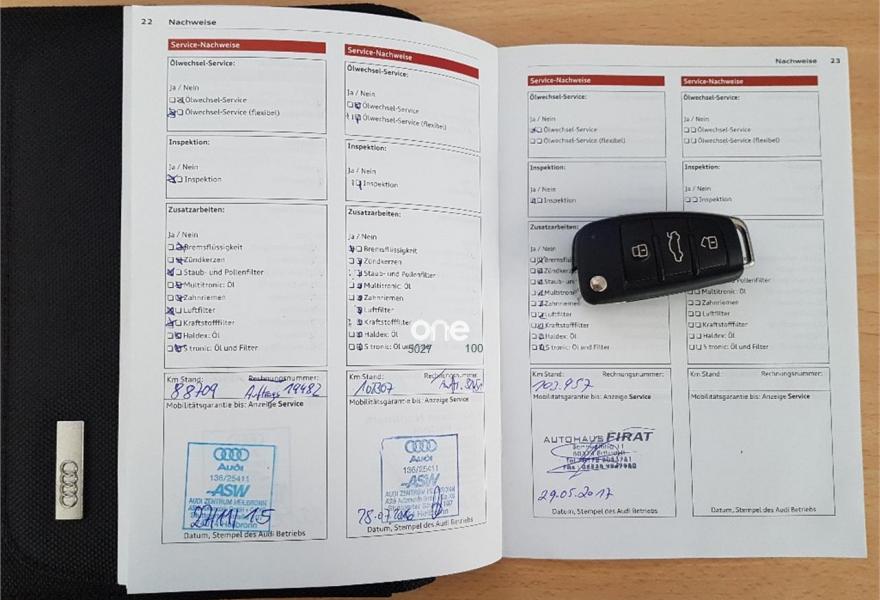 22 Nachweise
Service-Nachweise
Ölwechsel-Service:
Ja / Nein
Ölwechsel-Service
Ölwechsel-Service (flexibel)
Inspektion:
Ja / Nein
Inspektion
Zusatzarbeiten:
Ja / Nein
Bremsflüssigkeit
Zündkerzen
Staub- und Pollenfilter
Multitronic: Öl
Zahnriemen
Luftfilter
Kraftstofffilter
Haldex: Öl
S tronic: Öl und Filter
Km Stand: Rechnungsnummer:
88709 Auftrag 19482
Mobilitätsgarantie bis: Anzeige Service
Audi
136/25411
ASW
AUDI ZENTRUM HEILBRONN
27/11/15
Datum, Stempel des Audi Betriebs
Service-Nachweise
Ölwechsel-Service:
Ja / Nein
Ölwechsel-Service
Ölwechsel-Service (flexibel)
Inspektion:
Ja / Nein
Inspektion
Zusatzarbeiten:
Ja / Nein
Bremsflüssigkeit
Zündkerzen
Staub- und Pollenfilter
Multitronic: Öl
Zahnriemen
Luftfilter
Kraftstofffilter
Haldex: Öl
S tronic: Öl und Filter
one
5027 100
Km Stand: Rechnungsnummer:
Mobilitätsgarantie bis: Anzeige Service
Audi
136/25411
ASW
AUDI ZENTRUM HEILBRONN
Datum, Stempel des Audi Betriebs
Nachweise 23
Service-Nachweise
Ölwechsel-Service:
Ja / Nein
Ölwechsel-Service
Ölwechsel-Service (flexibel)
Inspektion:
Ja / Nein
Inspektion
Zusatzarbeiten:
Ja / Nein
Bremsflüs
Zündkerze
Staub- un
Multitroni
Zahnriemen
Luftfilter
Kraftstofffilter
Haldex: Öl
S tronic: Öl und Filter
Km Stand: Rechnungsnummer:
103.957
Mobilitätsgarantie bis: Anzeige Service
AUTOHAUS FIRAT
29.05.2017
Datum, Stempel des Audi Betriebs
Service-Nachweise
Ölwechsel-Service:
Ja / Nein
Ölwechsel-Service
Ölwechsel-Service (flexibel)
Inspektion:
Ja / Nein
Inspektion
Pollenfilter
Multitronic: Öl
Zahnriemen
Luftfilter
Kraftstofffilter
Haldex: Öl
S tronic: Öl und Filter
Km Stand: Rechnungsnummer:
Mobilitätsgarantie bis: Anzeige Service
Datum, Stempel des Audi Betriebs